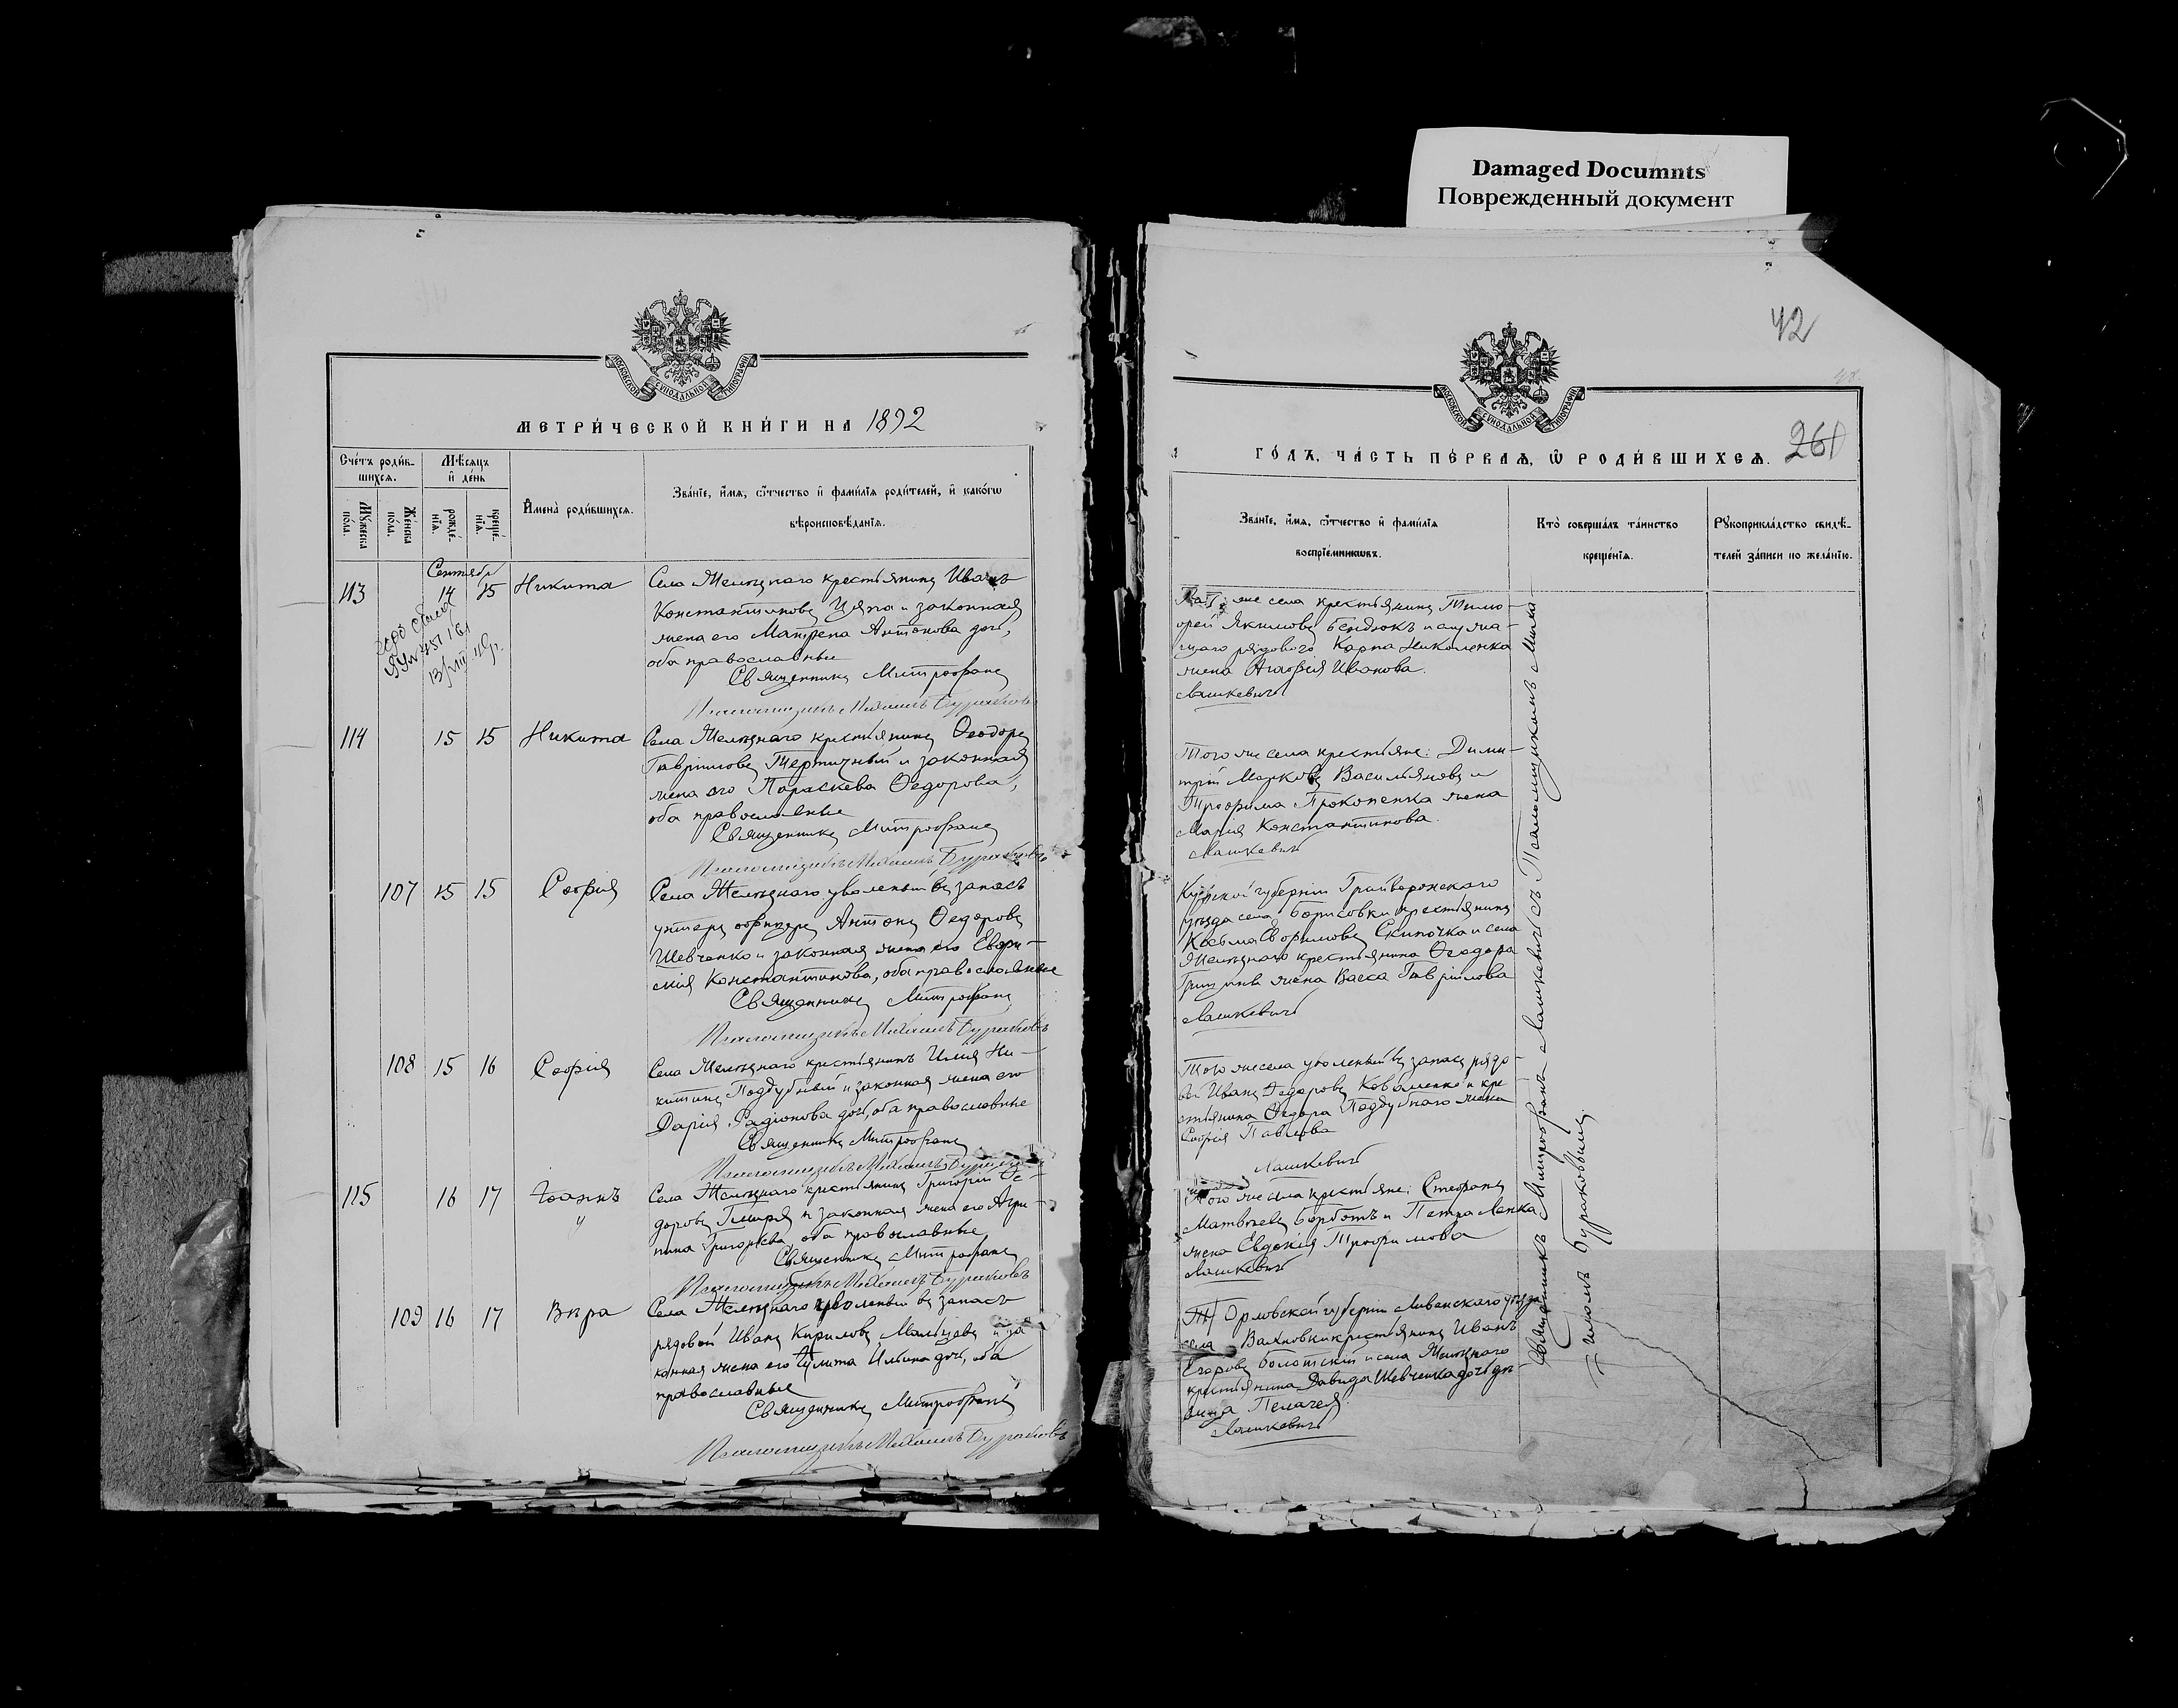 Damaged Documnts
Поврежденный документ
42
МОСКОВСКОЙ СѴНОДАЛЬНОЙ ТИПОГРАФІИ
МЕТРИ́ЧЕСКОЙ КНИ́ГИ НА 1892
Сче́тъ роди́в-
шихсѧ.
Мѣ́сѧцъ
и҆ де́нь
Мꙋ́жеска
по́ла.
Же́нска
по́ла.
рожде́-
нїѧ.
креще́-
нїѧ.
И҆мена̀ роди́вшихсѧ.
Зва́нїе, и҆́мѧ, ѻ҆́тчество и҆ фами́лїѧ роди́телей, и҆ како́гѡ
вѣроисповѣ́данїѧ.
Сентябр
113 14 15 Никита
Села Желѣзнаго крестьянинъ Иванъ
Константиновъ и законная
жена его Матрена Антонова доч,
оба православные
Священникъ Митрофанъ
Псаломщикъ Михаилъ Бураковъ
114 15 15 Никита
Села Желѣзнаго крестьянинъ Ѳеодоръ
Гавріиловъ Тертичный и законная
жена его Параскева Ѳедорова,
оба православные
Священникъ Митрофанъ
Псаломщикъ Михаилъ Бураковъ
107 15 15 Софія
Села Желѣзнаго уволеный въ запасъ
унтеръ офицеръ Антонъ Ѳедоровъ
Шевченко и законная жена его Евфи-
мія Константинова, оба православные
Священникъ Митрофанъ
Псаломщикъ Михаилъ Бураковъ
108 15 16 Софія
Села Желѣзнаго крестьянинъ Илія Ни-
китинъ Поддубный и законная жена его
Дарія Радіонова доч, оба православные
Священникъ Митрофанъ
Псаломщикъ Михаилъ
115 16 17 Іоаннъ
Села Желѣзнаго крестьянинъ Григорій Ѳе-
доровъ и законная жена его Агри-
пина Григорьева, оба православные
Священникъ Митрофанъ
Псаломщикъ Михаилъ Бураковъ
109 16 17 Вѣра
Села Желѣзнаго уволеный въ запасъ
рядовой Иванъ Кириловъ Мальцевъ и за
конная жена его Улита Ильина доч, оба
православные
Священникъ Митрофанъ
Псаломщикъ Михаилъ Бураковъ
МОСКОВСКОЙ СѴНОДАЛЬНОЙ ТИПОГРАФІИ
ГО́ДЪ, ЧА́СТЬ ПЕ́РВАѦ, Ѡ҆ РОДИ́ВШИХСѦ. 261
Зва́нїе, и҆́мѧ, ѻ҆́тчество и҆ фами́лїѧ
воспрїе́мникѡвъ.
Кто̀ соверша́лъ та́инство
креще́нїѧ.
Рꙋкоприкла́дство свидѣ́-
телей за́писи по жела́нїю.
же села крестьянинъ Тимо-
фей Якимовъ Бендюкъ и
рядового Карпа Николенка
жена Агафія Иванова.
Лашкевичъ
Того же села крестьяне: Дими-
трій Марковъ Васильяновъ и
Трофима Прокопенка жена
Марія Константинова.
Лашкевичъ
Курской губерніи Грайворонскаго
уѣзда села Борисовки крестьянинъ
Косьма Евфимовъ Скипочка и села
Желѣзнаго крестьянина Ѳеодора
Грищина жена Васса Гавріилова
Лашкевичъ
Того же села уволеный въ запасъ рядо-
вой Иванъ Ѳедоровъ Коваленко и кре
стьянина Ѳедора Поддубнаго жена
Софія Павлова
Лашкевичъ
Того же села крестьяне: Стефанъ
Матвѣевъ Борботъ и Петра Ленка
жена Евдокія Трофимова
Лашкевичъ
Орловской губерніи Ливенскаго уѣзда
села крестьянинъ Иванъ
Егоровъ Болотскій и села Желѣзнаго
крестьянина Давида Шевченка дочь дѣ-
вица Пелагея.
Лашкевичъ
Священникъ Митрофанъ Лашкевичъ съ Псаломщикомъ Миха-
иломъ Бураковымъ